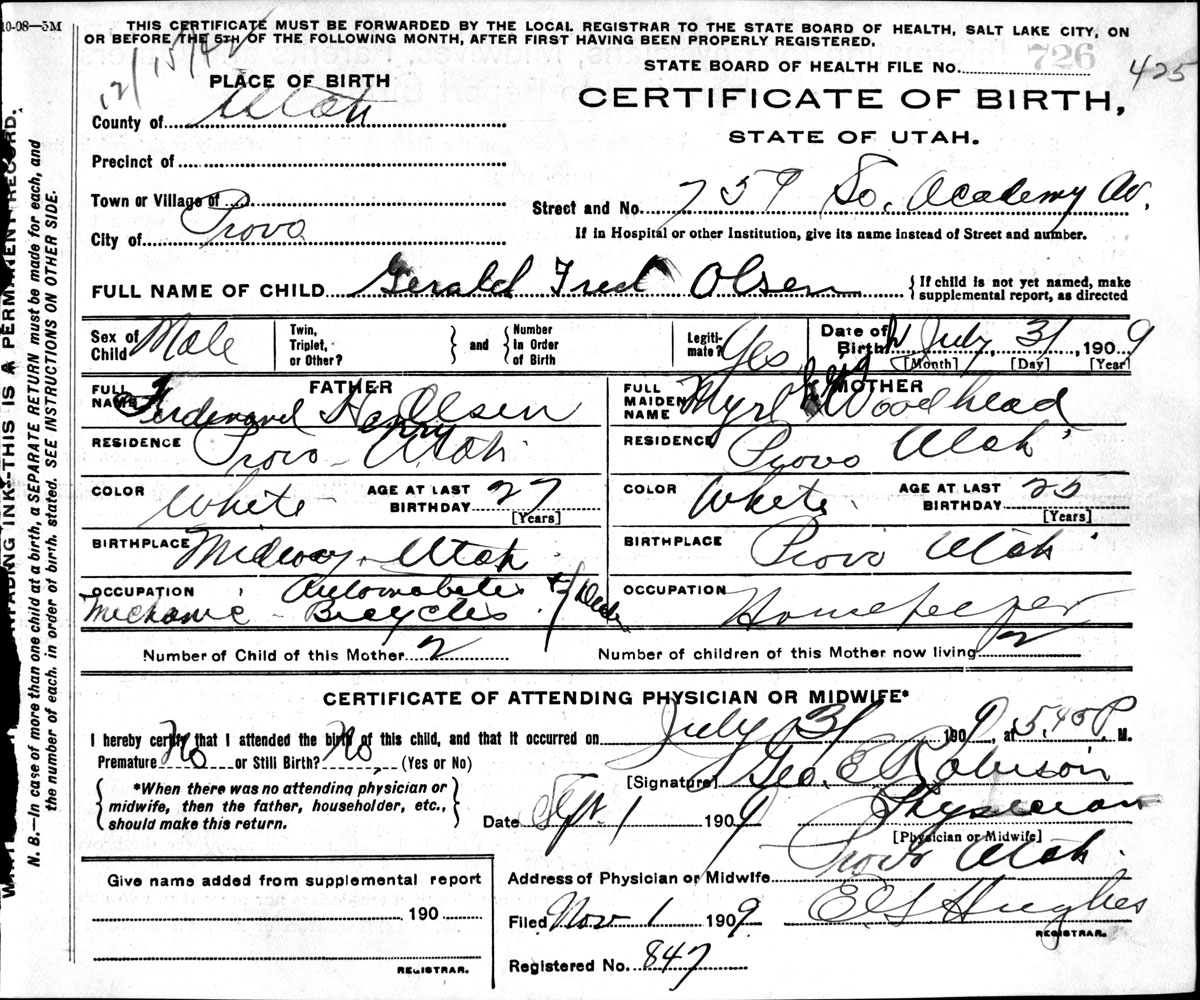 10-08—5M
THIS CERTIFICATE MUST BE FORWARDED BY THE LOCAL REGISTRAR TO THE STATE BOARD OF HEALTH, SALT LAKE CITY, ON
OR BEFORE THE 5TH OF THE FOLLOWING MONTH, AFTER FIRST HAVING BEEN PROPERLY REGISTERED.
12/15/42
STATE BOARD OF HEALTH FILE No. 726 425
PLACE OF BIRTH
CERTIFICATE OF BIRTH,
STATE OF UTAH.
County of Utah
Precinct of
Town or Village of
City of Provo
Street and No. 759 So. Academy Av.
If in Hospital or other Institution, give its name instead of Street and number.
FULL NAME OF CHILD Gerald Fred Olsen { If child is not yet named, make supplemental report, as directed
Sex of Child Male
Twin, Triplet, or Other? } and { Number In Order of Birth
Legiti-mate? Yes
Date of Birth July 31, 1909
[Month] [Day] [Year]
FATHER
FULL NAME Ferdinand Harry Olsen
MOTHER
FULL MAIDEN NAME Myrl Woodhead
RESIDENCE Provo - Utah
RESIDENCE Provo Utah
COLOR White AGE AT LAST BIRTHDAY 27 [Years]
COLOR White AGE AT LAST BIRTHDAY [Years]
BIRTHPLACE Midway - Utah
BIRTHPLACE Provo Utah
OCCUPATION Automobiles
Mechanic - Bicycles
OCCUPATION Housekeeper
Number of Child of this Mother 2
Number of children of this Mother now living 2
CERTIFICATE OF ATTENDING PHYSICIAN OR MIDWIFE*
I hereby certify that I attended the birth of this child, and that it occurred on July 31 1909, at 5.45 P. M.
Premature No or Still Birth? No, (Yes or No)
[Signature] Geo. E. Robinson
{ *When there was no attending physician or midwife, then the father, householder, etc., should make this return. }
Date Sept. 1 1909
Physician
[Physician or Midwife]
Address of Physician or Midwife Provo Utah.
Give name added from supplemental report
190
REGISTRAR.
Filed Nov 1 1909
Hughes
REGISTRAR.
Registered No. 847
INK--THIS IS A PERMANENT RECORD.
N. B.—In case of more than one child at a birth, a SEPARATE RETURN must be made for each, and
the number of each, in order of birth, stated. SEE INSTRUCTIONS ON OTHER SIDE.